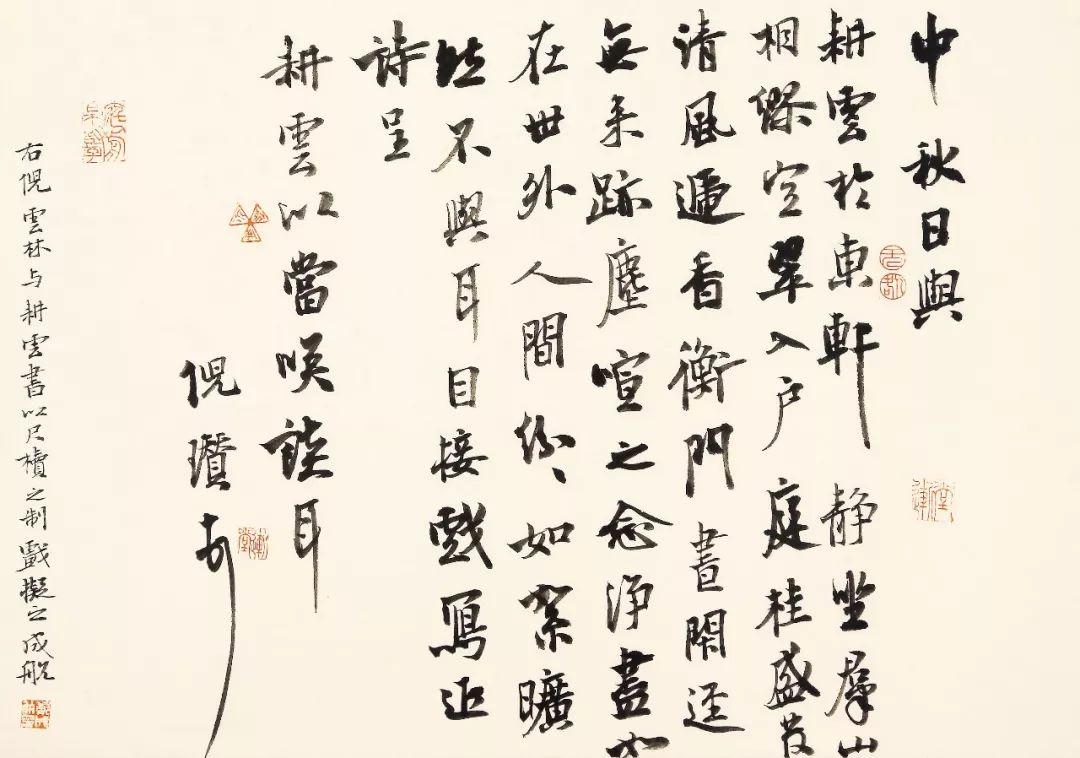 中秋日與
耕雲於東軒靜坐羣山
相繆空翠入戶庭桂盛發
清風遞香衡門晝閑逕
無来跡塵喧之念淨盡如
在世外人間紛紛如絮曠
然不與耳目接戲寫近
詩呈
耕雲以當咲談耳
倪瓚
右倪雲林与耕雲書以尺牘之制戲擬之成